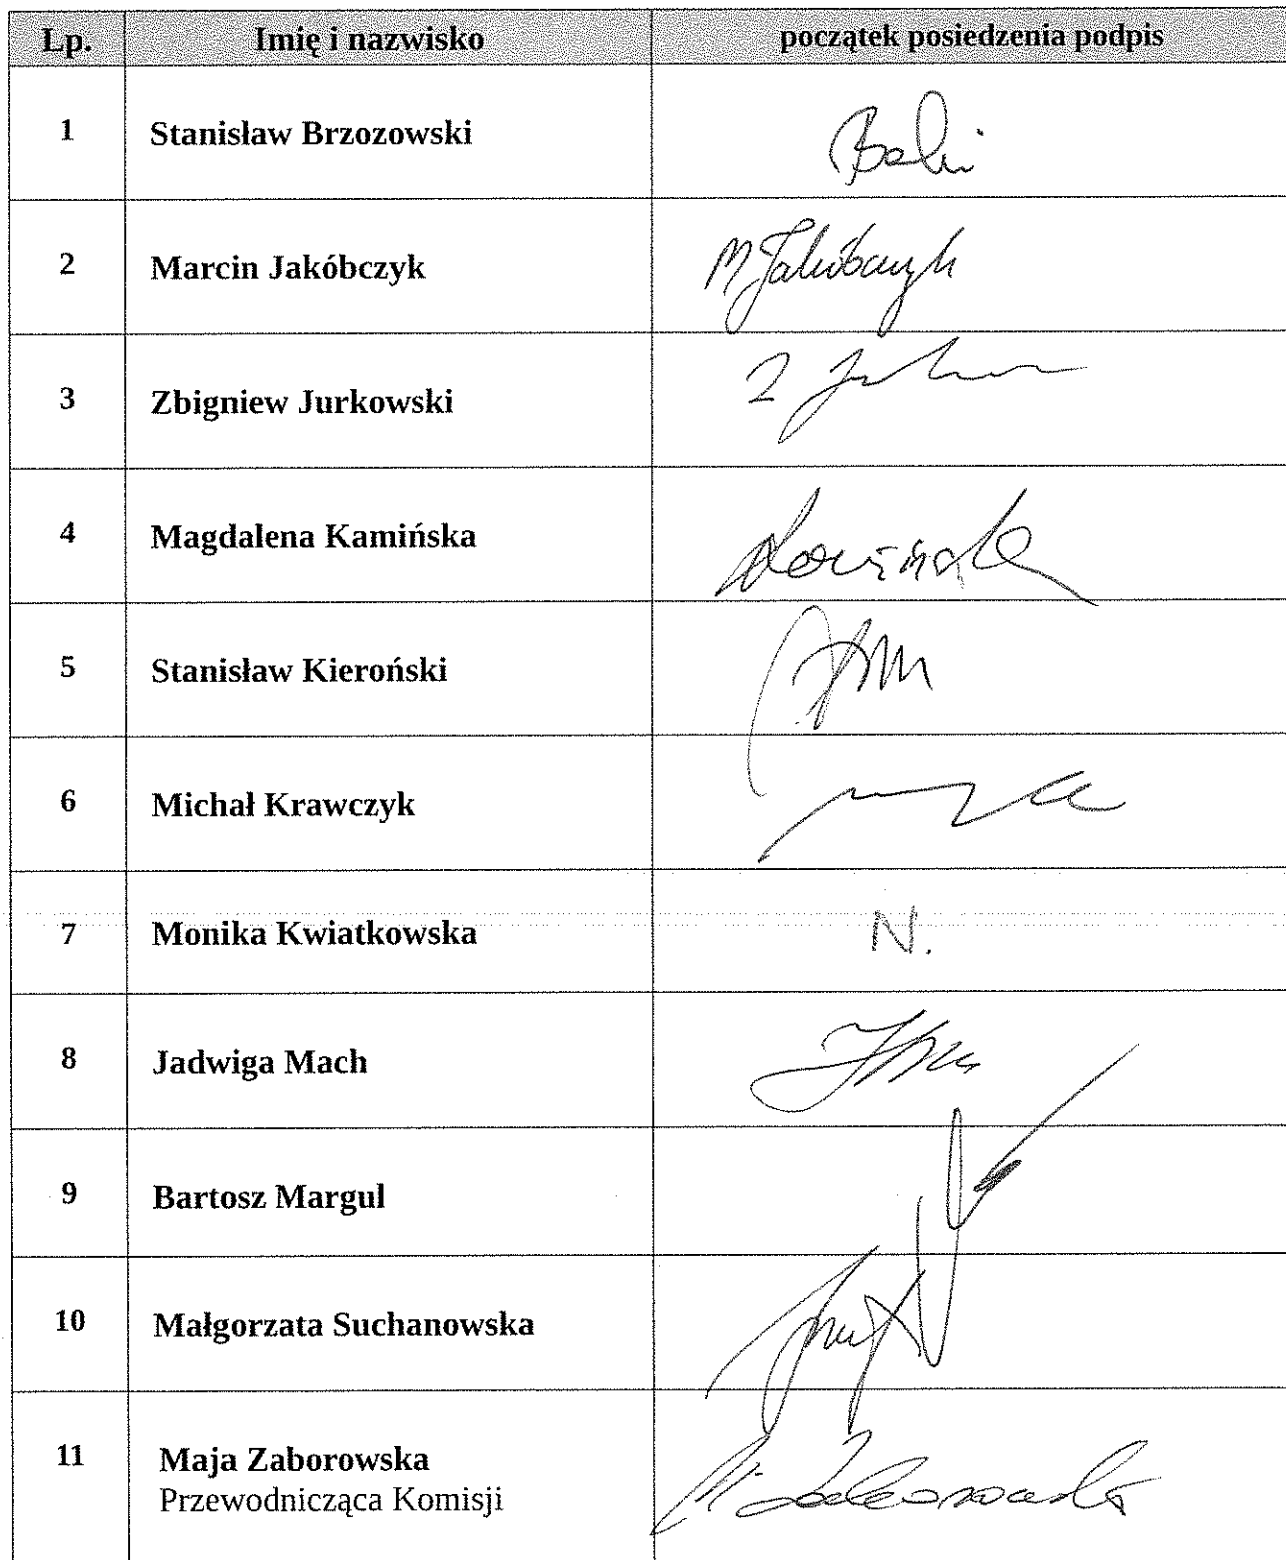 Lp. Imię i nazwisko początek posiedzenia podpis
1 Stanisław Brzozowski
2 Marcin Jakóbczyk M Jakóbczyk
3 Zbigniew Jurkowski
4 Magdalena Kamińska
5 Stanisław Kieroński
6 Michał Krawczyk
7 Monika Kwiatkowska N.
8 Jadwiga Mach
9 Bartosz Margul
10 Małgorzata Suchanowska
11 Maja Zaborowska M. Zaborowska
Przewodnicząca Komisji